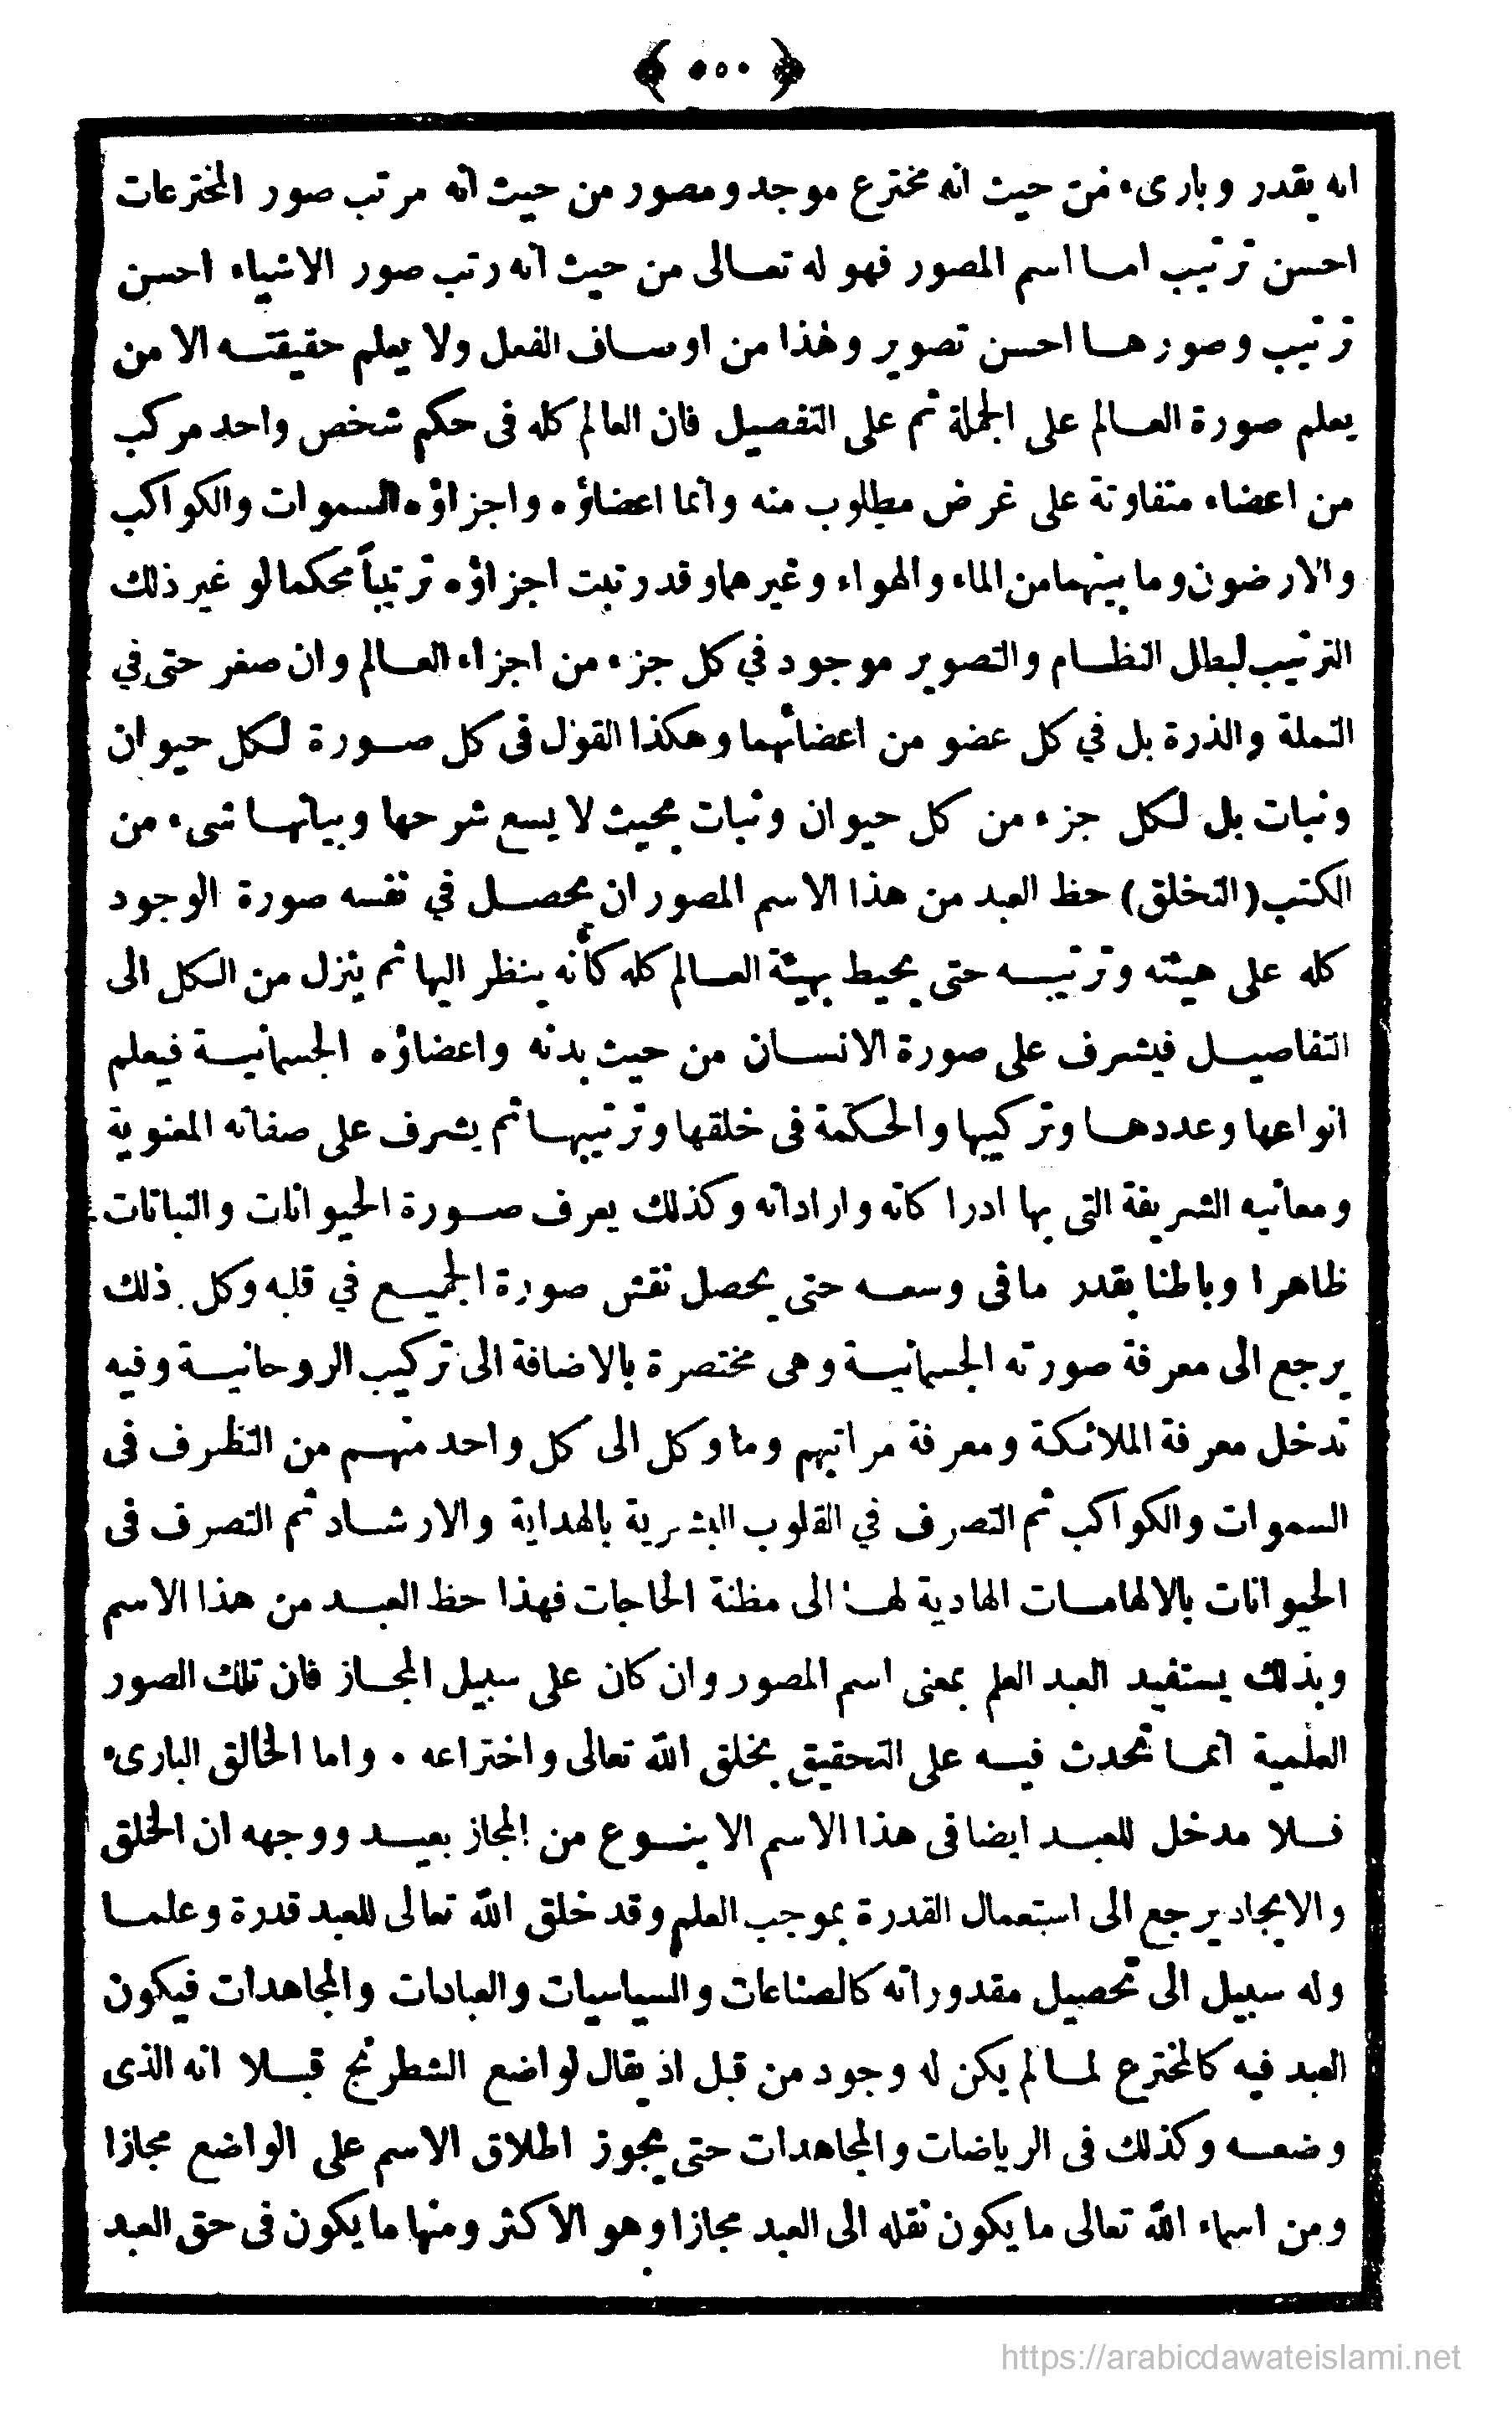 ﴿ ٥٥٠ ﴾
انه يقدر وبارىء فمن حيث انه مخترع موجد ومصور من حيث انه مرتب صور المخترعات
احسن ترتيب اما اسم المصور فهو له تعالى من حيث انه رتب صور الاشياء احسن
ترتيب وصورها احسن تصوير وهذا من اوصاف الفعل ولا يعلم حقيقته الا من
يعلم صورة العالم على الجملة ثم على التفصيل فان العالم كله فى حكم شخص واحد مركب
من اعضاء متفاوتة على غرض مطلوب منه وانما اعضاؤه واجزاؤه السموات والكواكب
والارضون وما بينهما من الماء والهواء وغيرهما وقد رتبت اجزاؤه ترتيباً محكما لو غير ذلك
الترتيب لبطل النظام والتصوير موجود في كل جزء من اجزاء العالم وان صغر حتى في
النملة والذرة بل في كل عضو من اعضائهما وهكذا القول فى كل صورة لكل حيوان
ونبات بل لكل جزء من كل حيوان ونبات بحيث لا يسع شرحها وبيانها شىء من
الكتب (التخلق) حظ العبد من هذا الاسم المصور ان يحصل في نفسه صورة الوجود
كله على هيئته وترتيبه حتى يحيط بهيئة العالم كله كأنه ينظر اليها ثم ينزل من الكل الى
التفاصيل فيشرف على صورة الانسان من حيث بدنه واعضاؤه الجسمانية فيعلم
انواعها وعددها وتركيبها والحكمة فى خلقها وترتيبها ثم يشرف على صفاته المعنوية
ومعانيه الشريفة التى بها ادراكاته واراداته وكذلك يعرف صورة الحيوانات والنباتات
ظاهرا وباطنا بقدر ما فى وسعه حتى يحصل نقش صورة الجميع في قلبه وكل ذلك
يرجع الى معرفة صورته الجسمانية وهى مختصرة بالاضافة الى تركيب الروحانية وفيه
تدخل معرفة الملائكة ومعرفة مراتبهم وما وكل الى كل واحد منهم من التظرف فى
السموات والكواكب ثم التصرف في القلوب البشرية بالهداية والارشاد ثم التصرف فى
الحيوانات بالالهامات الهادية لها الى مظنة الحاجات فهذا حظ العبد من هذا الاسم
وبذلك يستفيد العبد العلم بمعنى اسم المصور وان كان على سبيل المجاز فان تلك الصور
العلمية انما تحدث فيه على التحقيق بخلق الله تعالى واختراعه • واما الخالق البارىء
فلا مدخل للعبد ايضا فى هذا الاسم الا بنوع من المجاز بعيد ووجهه ان الخلق
والايجاد يرجع الى استعمال القدرة بموجب العلم وقد خلق الله تعالى للعبد قدرة وعلما
وله سبيل الى تحصيل مقدوراته كالصناعات والسياسيات والعبادات والمجاهدات فيكون
العبد فيه كالمخترع لما لم يكن له وجود من قبل اذ يقال لواضع الشطرنج قبلا انه الذى
وضعه وكذلك فى الرياضات والمجاهدات حتى يجوز اطلاق الاسم على الواضع مجازا
ومن اسماء الله تعالى ما يكون نقله الى العبد مجازا وهو الاكثر ومنها ما يكون فى حق العبد
https://arabicdawateislami.net